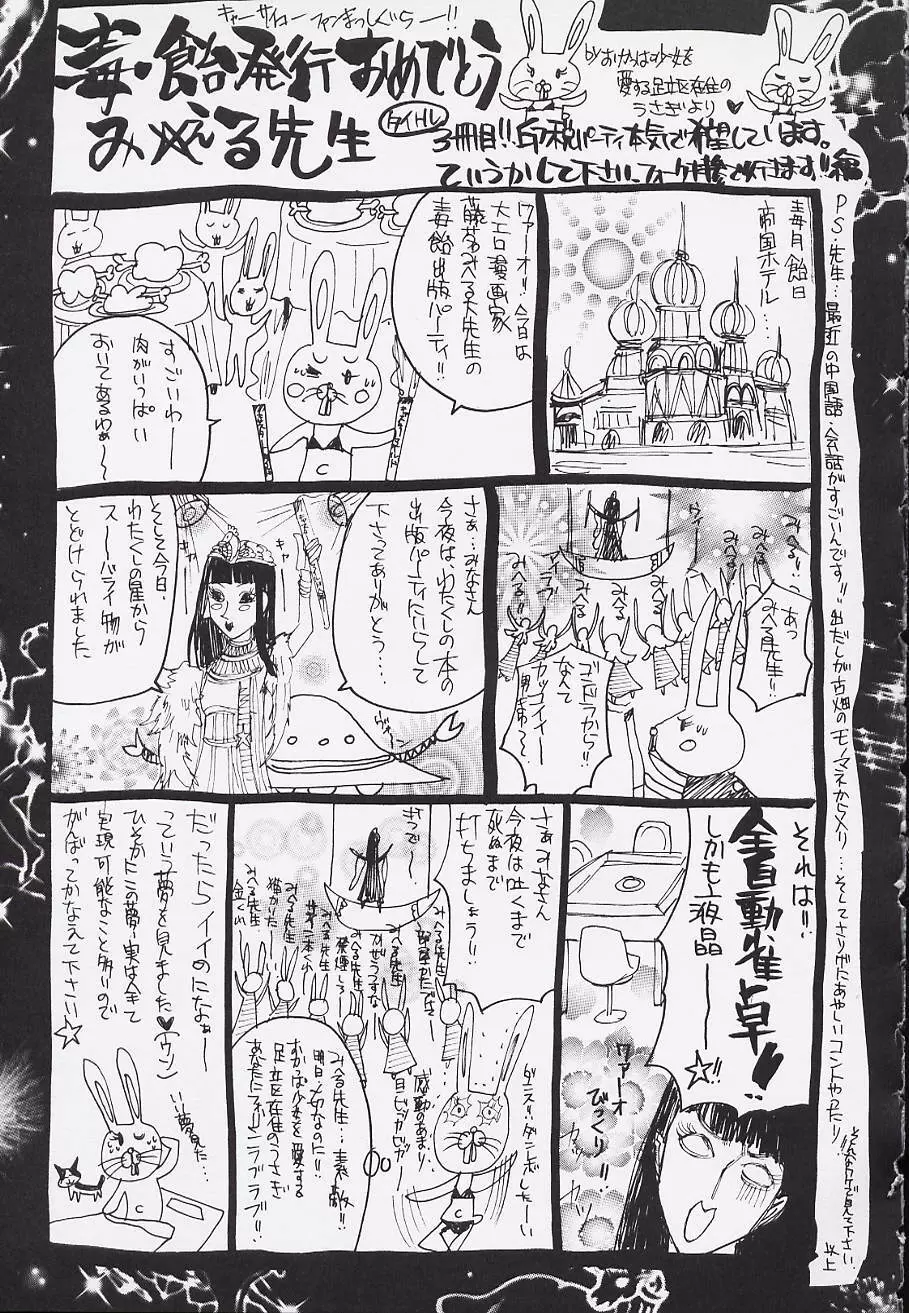 キャーサイコー ファンまっしぐらー!!
毒・飴発行おめでとう
みべる先生
タイトル
byおかっぱ少女を
愛する足立区在住の
うさぎより♥
3冊目!!印税パーティ本気で希望しています。
ていうかして下さい、フォーク持参で行きます!!編
毒月飴日
帝国ホテル…
ワァーオ!!今日は
大エロ漫画家
藤若みべる大先生の
毒飴出版パーティ!!
すごいわー
肉がいっぱい
おいてあるわぁ〜
みべる!!
みべる
みべる
みべる
ウィーン
ラブ
あっ
みべる先生!!
ゴンドラからっ!!
なんて
カッコイイー
さぁ…みなさん
今夜は、わたくしの本の
出版パーティにいらして
下さってありがとう…
キャー
そして今日、
わたくしの星から
スゥーバライ物が
とどけられました
それは!!
全自動雀卓!!
しかも液晶――☆!!
ワァーオ
びっくり!!
さぁみなさん
今夜は吐くまで
死ぬまで
打ちましょう!!
みべる先生
みべる先生
かぜうつすな
みべる先生
みべる先生
猫かいた
みべる先生
金くれ
感動のあまり
目ピッカピカ
みべる先生…素敵!!
足立区在住のうさぎ
ラブラブ!!
だったらイイのになぁー
っていう夢を見ました♥(ウソ)
ひそかにこの夢・実は全て
実現可能なこと多いので
がんばってかなえて下さい☆
夢見た…
PS・先生…最近の中国語・会話がすごいんです!!出だしが古畑のモノマネから入り…そしてさりげにあやしいコントやったり!!
そんなワケで見て下さい
以上